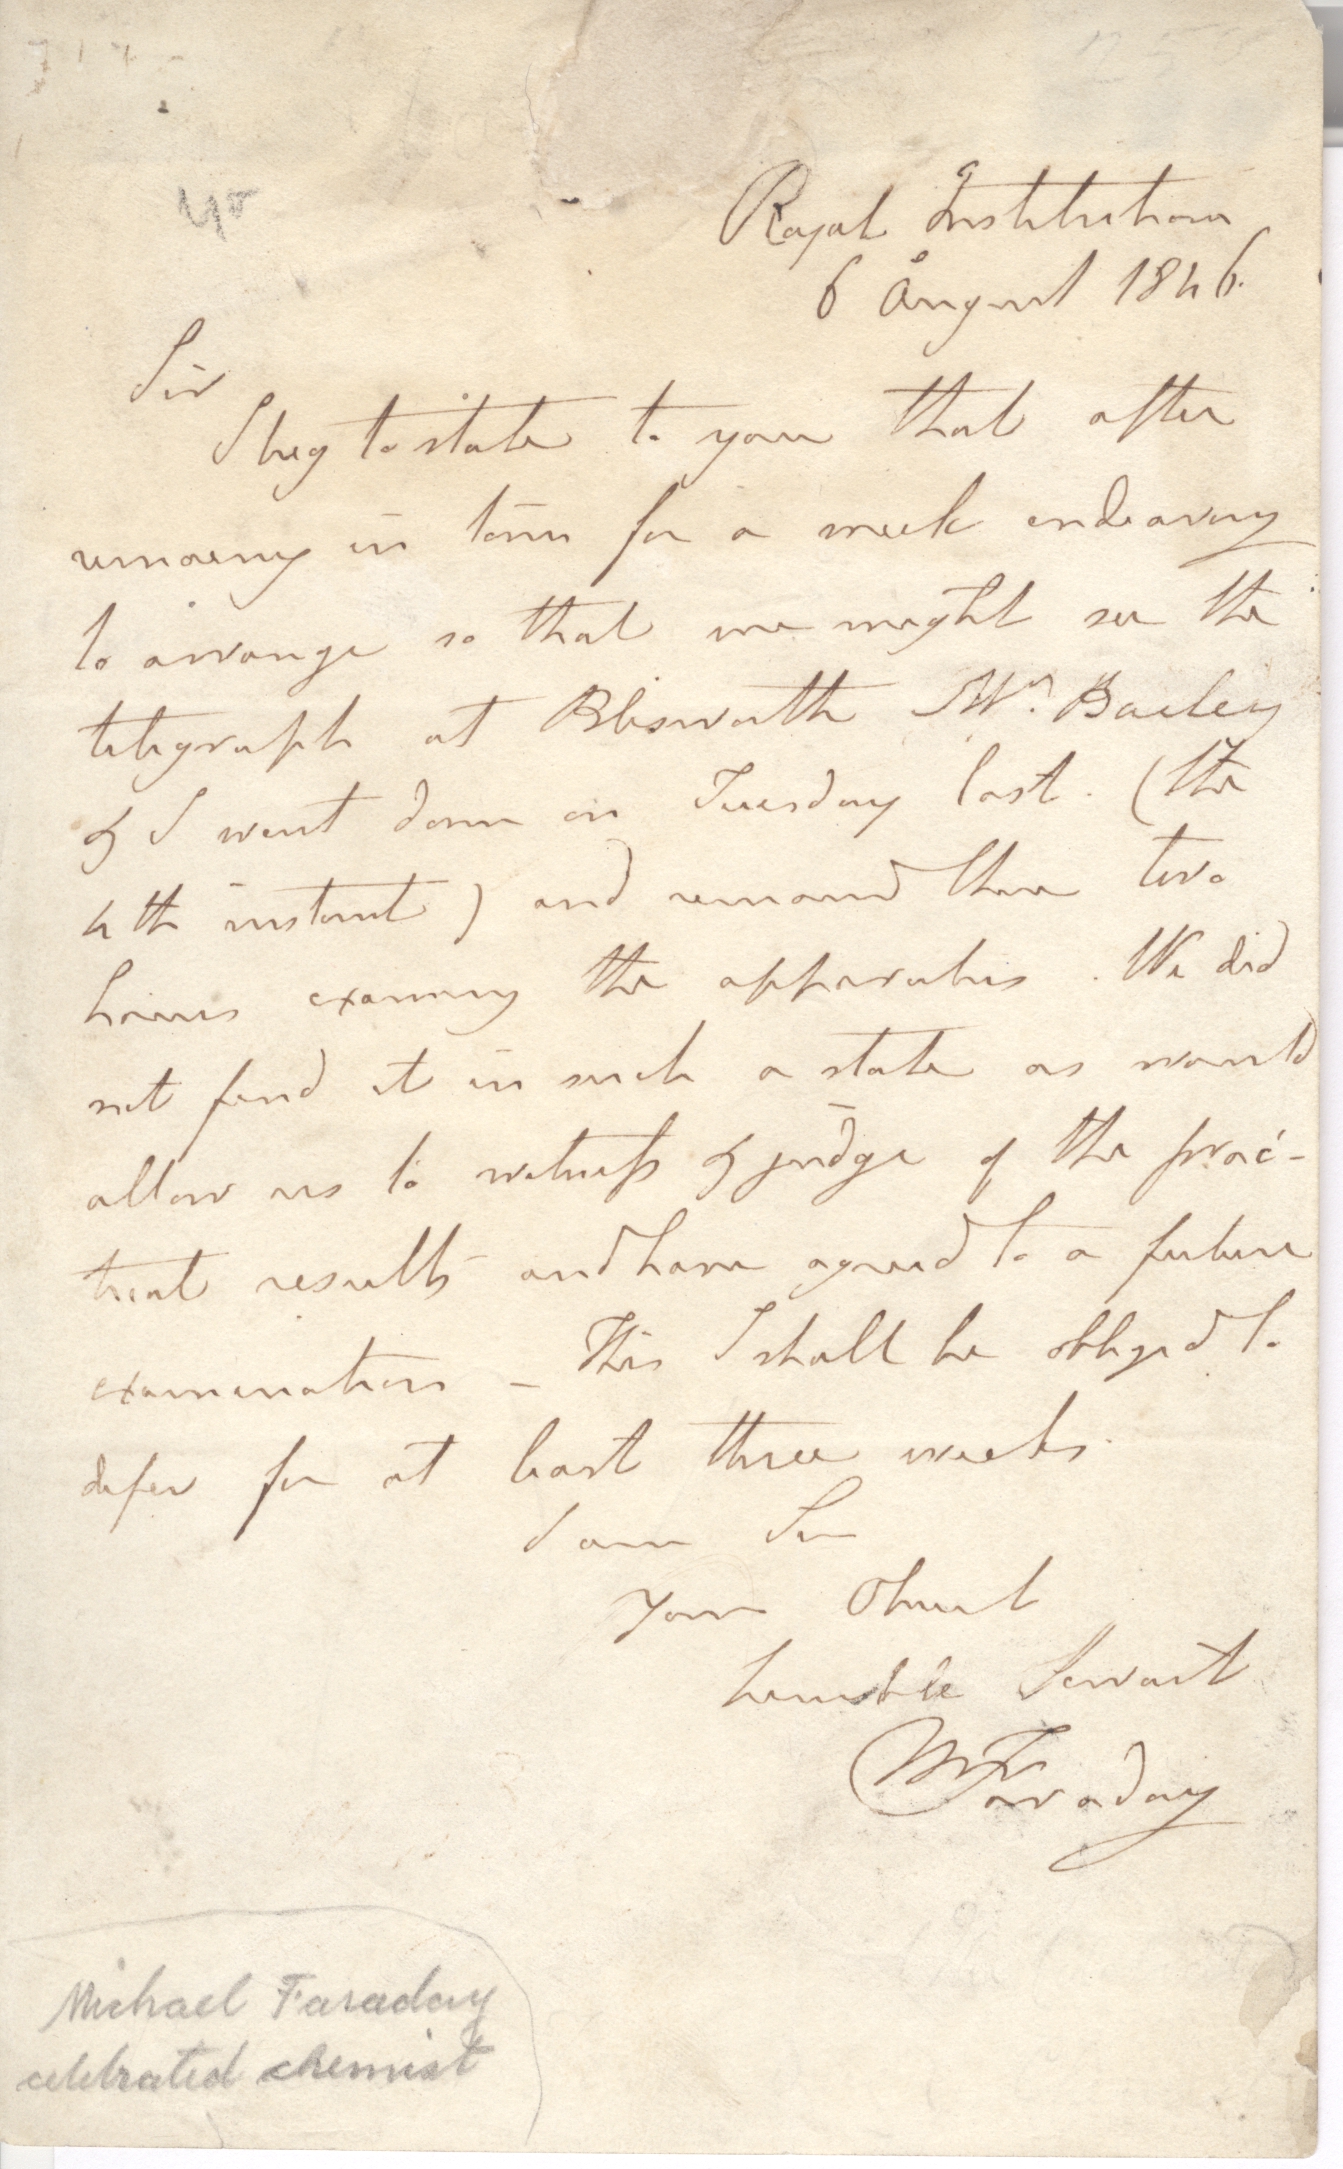 Royal Institution
6 August 1846.
Sir
I beg to state to you that after
remaing in town for a week endeavng
to arrange so that we might see the
telegraph at Blisworth Mr. Bailey
& I went down on Tuesday last. (the
4th instant) and remaind there two
hours examing the apparatus. We did
not find it in such a state as would
allow us to witness & judge of the prac-
tical results and have agreed to a future
examination - This I shall be obliged to
defer for at least three weeks.
I am Sir
Your Obent
humble Servant
M Faraday
Michael Faraday
celebrated chemist